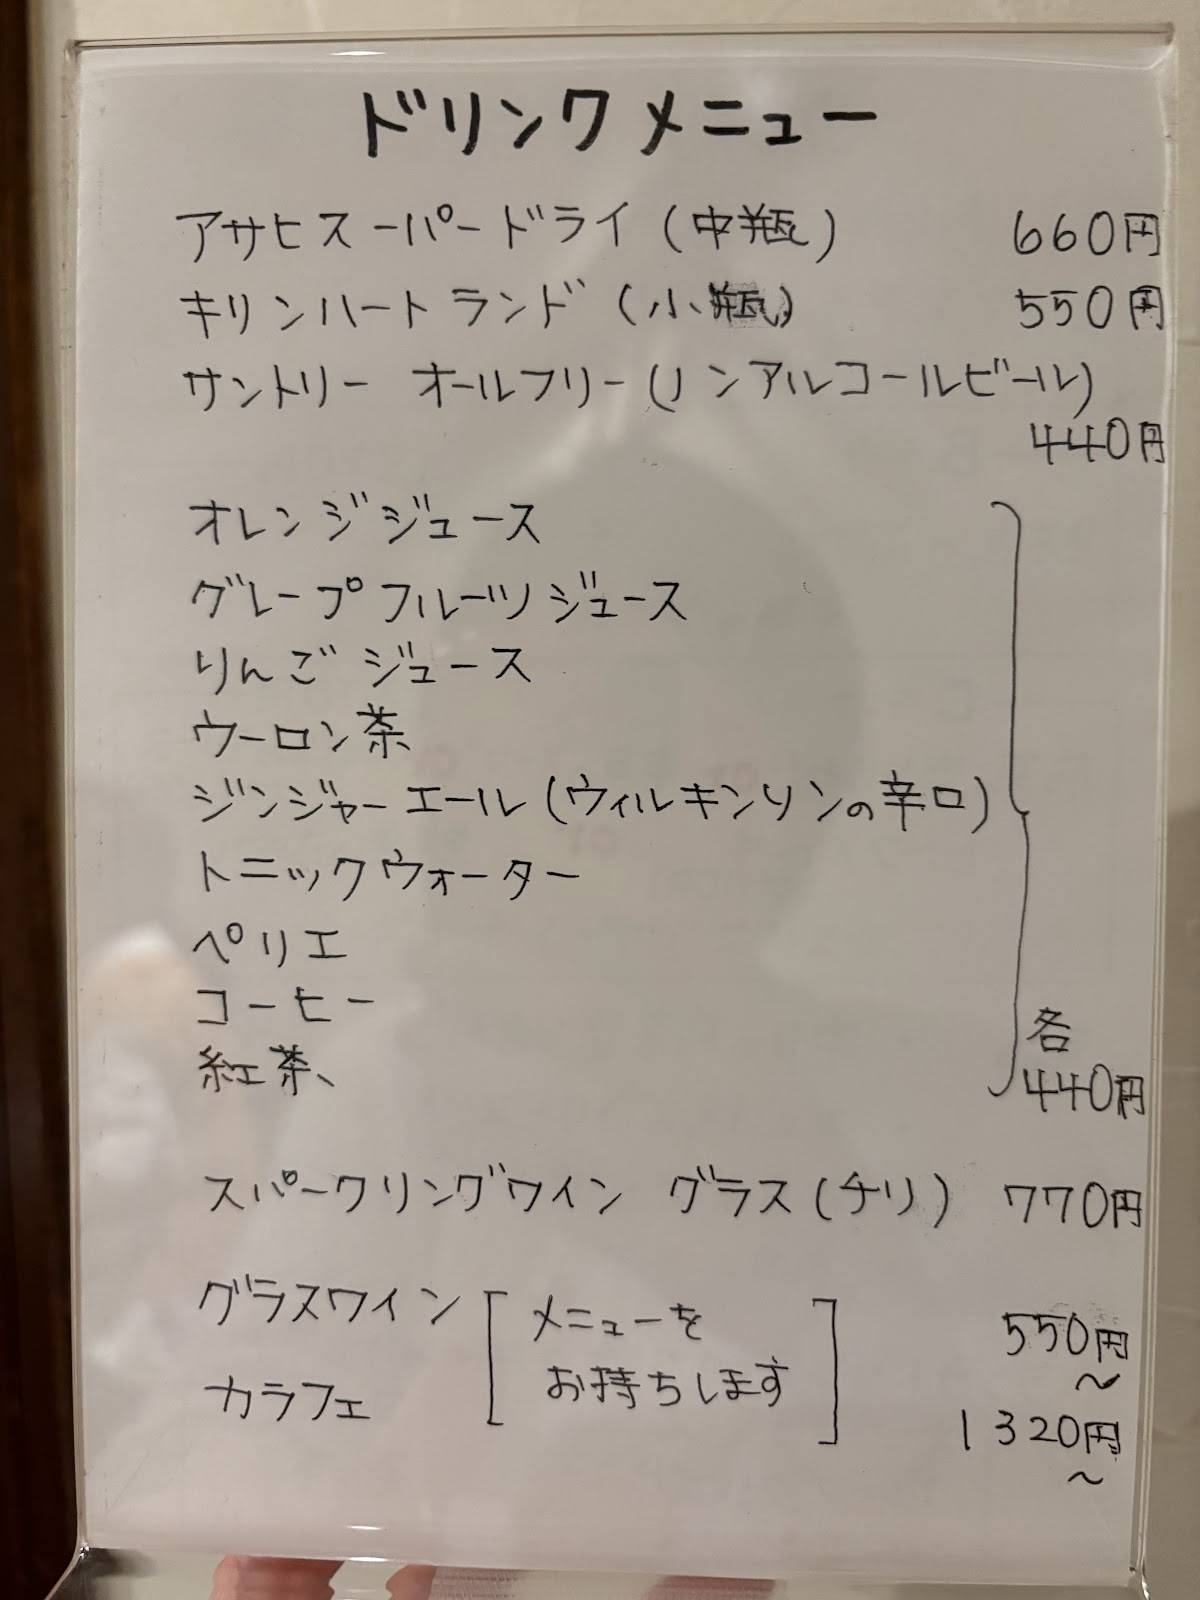 ドリンクメニュー
アサヒスーパードライ（中瓶） 660円
キリンハートランド（小瓶） 550円
サントリー オールフリー（ノンアルコールビール）
440円
オレンジジュース
グレープフルーツジュース
りんごジュース
ウーロン茶
ジンジャーエール（ウィルキンソンの辛口）
トニックウォーター
ペリエ
コーヒー
各
紅茶 440円
スパークリングワイン グラス（チリ） 770円
グラスワイン [メニューを 550円～
カラフェ お持ちします] 1320円～